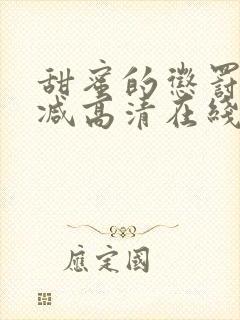 甜蜜的懲罰
减高清在綫
應定國